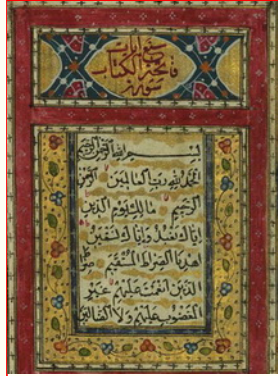 سبع آيات
فاتحة الكتاب
سورة
بسم الله الرحمن الرحيم
الحمد لله رب العالمين الرحمن
الرحيم مالك يوم الدين
إياك نعبد وإياك نستعين
اهدنا الصراط المستقيم صراط
الذين أنعمت عليهم غير
المغضوب عليهم ولا الضالين